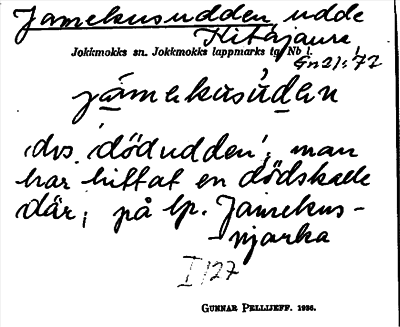 Jamekusudden, udde
Kitajaure
Jokkmokks sn. Jokkmokks lappmarks tg, Nb l.
Gn 21:77
jámekusuden
dvs. 'dödudden'; man
har hittat en dödskalle
där; på lp. Jamekus-
njarka
I 127
GUNNAR PELLIJEFF. 1936.